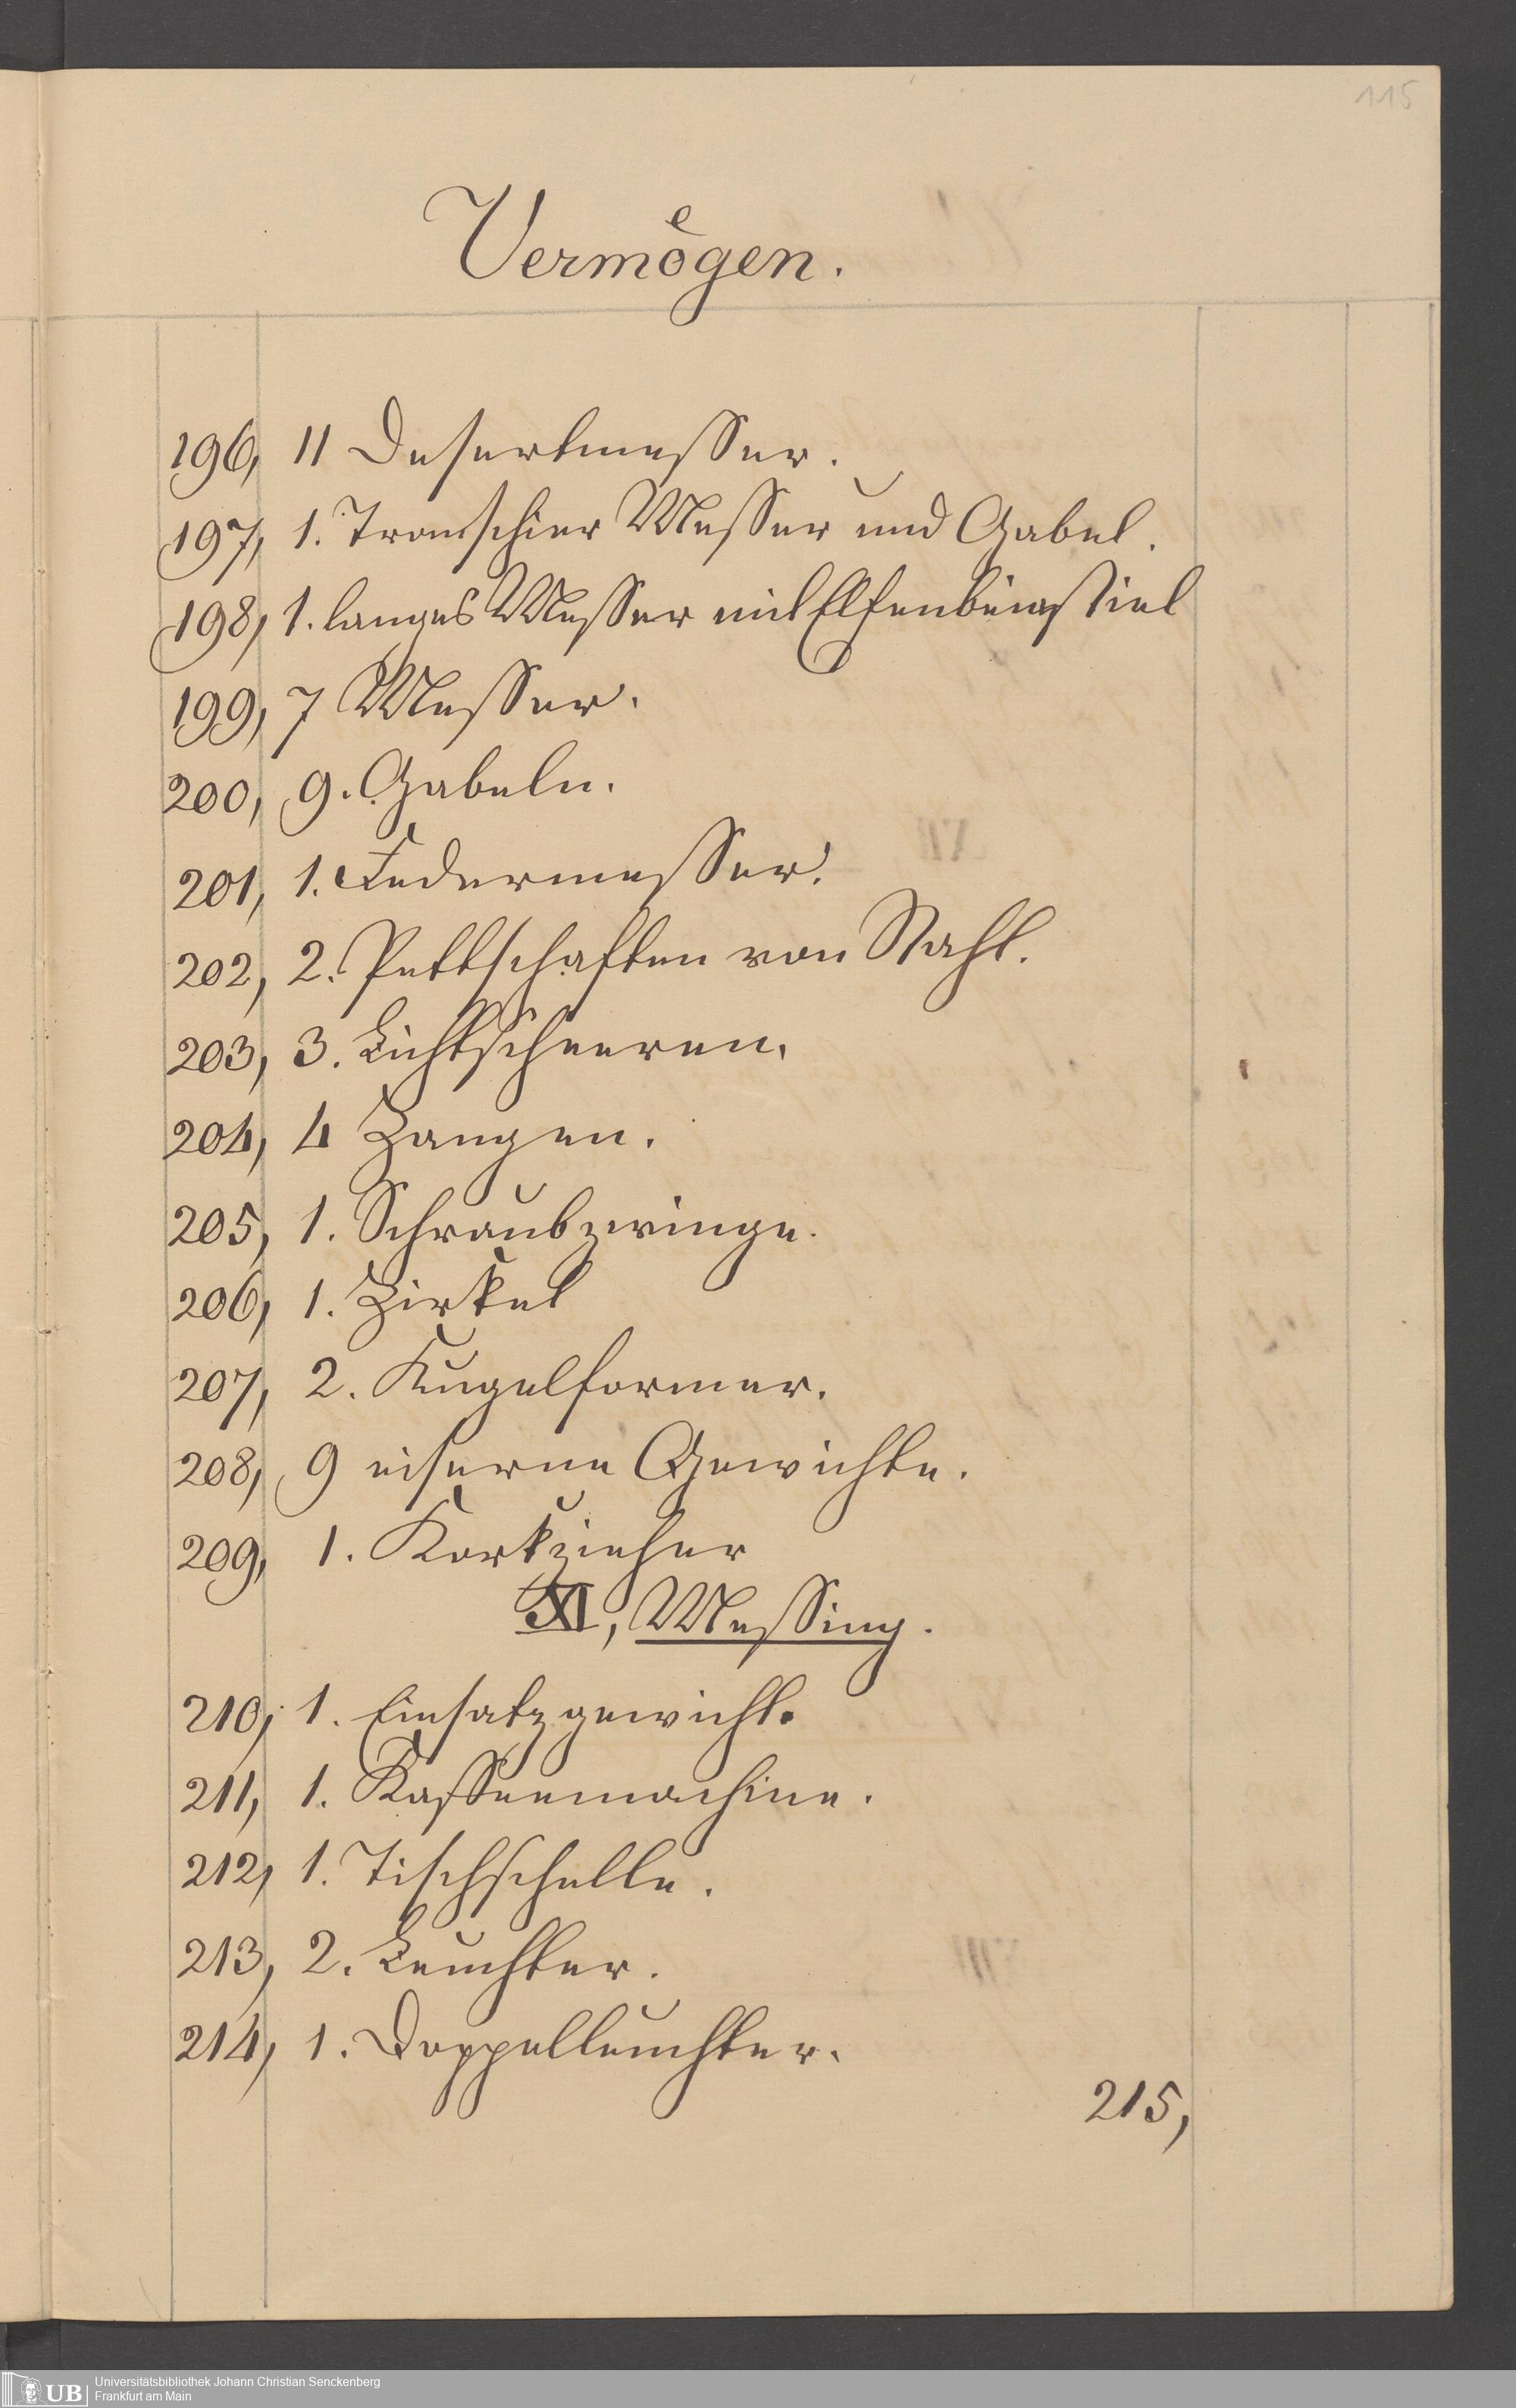 115
Vermögen.
196, 11 Desertmesser.
197, 1. Transchier Messer und Gabel.
198, 1. langes Messer mit Elfenbeinstiel
199, 7 Messer.
200, 9. Gabeln.
201, 1. Federmesser.
202, 2. Pettschaften von Stahl.
203, 3. Lichtscheeren.
204, 4 Zangen.
205, 1. Schraubzwinge.
206, 1. Zirkel
207, 2. Kugelformer.
208, 9 eiserne Gewichte.
209, 1. Korkzieher
XI, Messing.
210, 1. Einsatzgewicht.
211, 1. Kaffeemachine.
212, 1. Tischschelle.
213, 2. Leuchter.
214, 1. Doppelleuchter.
215,
UB
Universitätsbibliothek Johann Christian Senckenberg
Frankfurt am Main